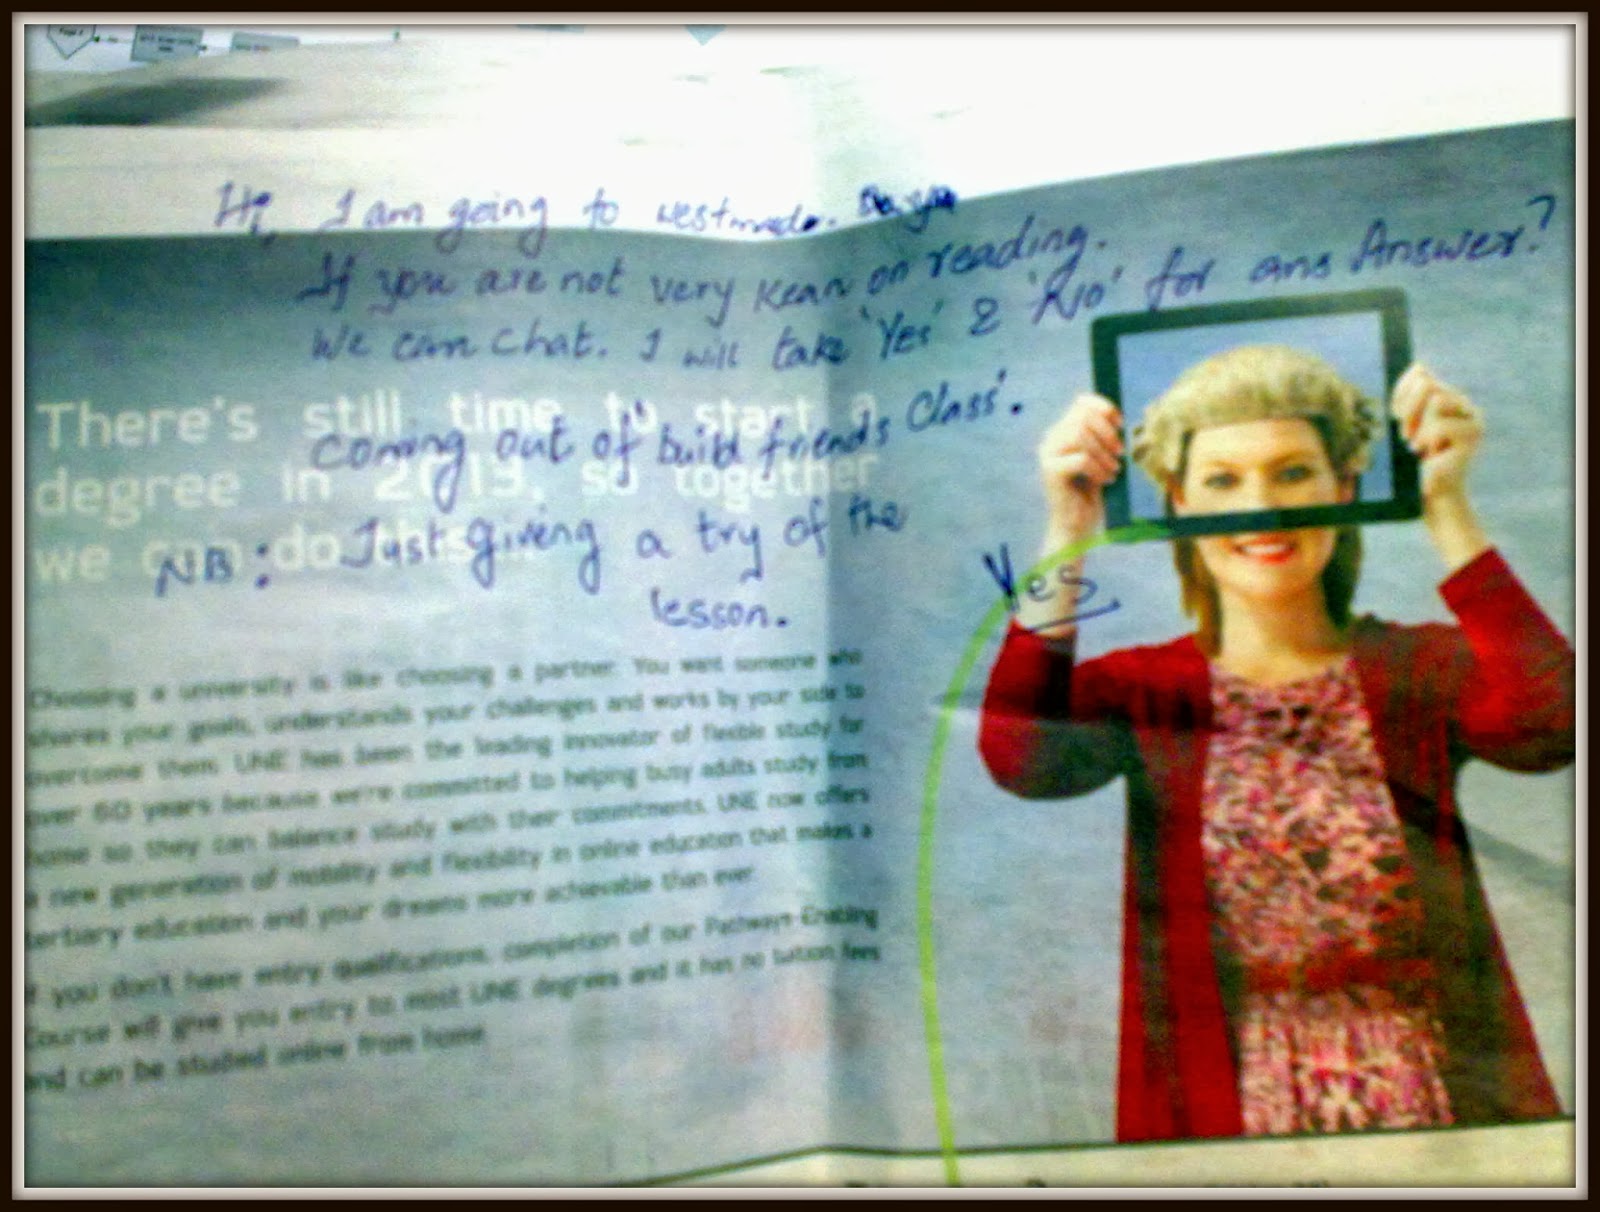 Hi, I am going to westmede.
If you are not very Kean on reading.
We can chat. I will take 'Yes' & 'No' for ans Answer?
Coming out of build friends Class'.
NB: Just giving a try of the
lesson.
Yes
There's still time to start a
degree in 2013, so together
we can do
Choosing a university is like choosing a partner. You want someone who
shares your goals, understands your challenges and works by your side to
overcome them. UNE has been the leading innovator of flexible study for
over 60 years because we're committed to helping busy adults study from
home so they can balance study with their commitments. UNE now offers
a new generation of mobility and flexibility in online education that makes a
tertiary education and your dreams more achievable than ever.
If you don't have entry qualifications, completion of our Pathways Enabling
Course will give you entry to most UNE degrees and it has no tuition fees
and can be studied online from home